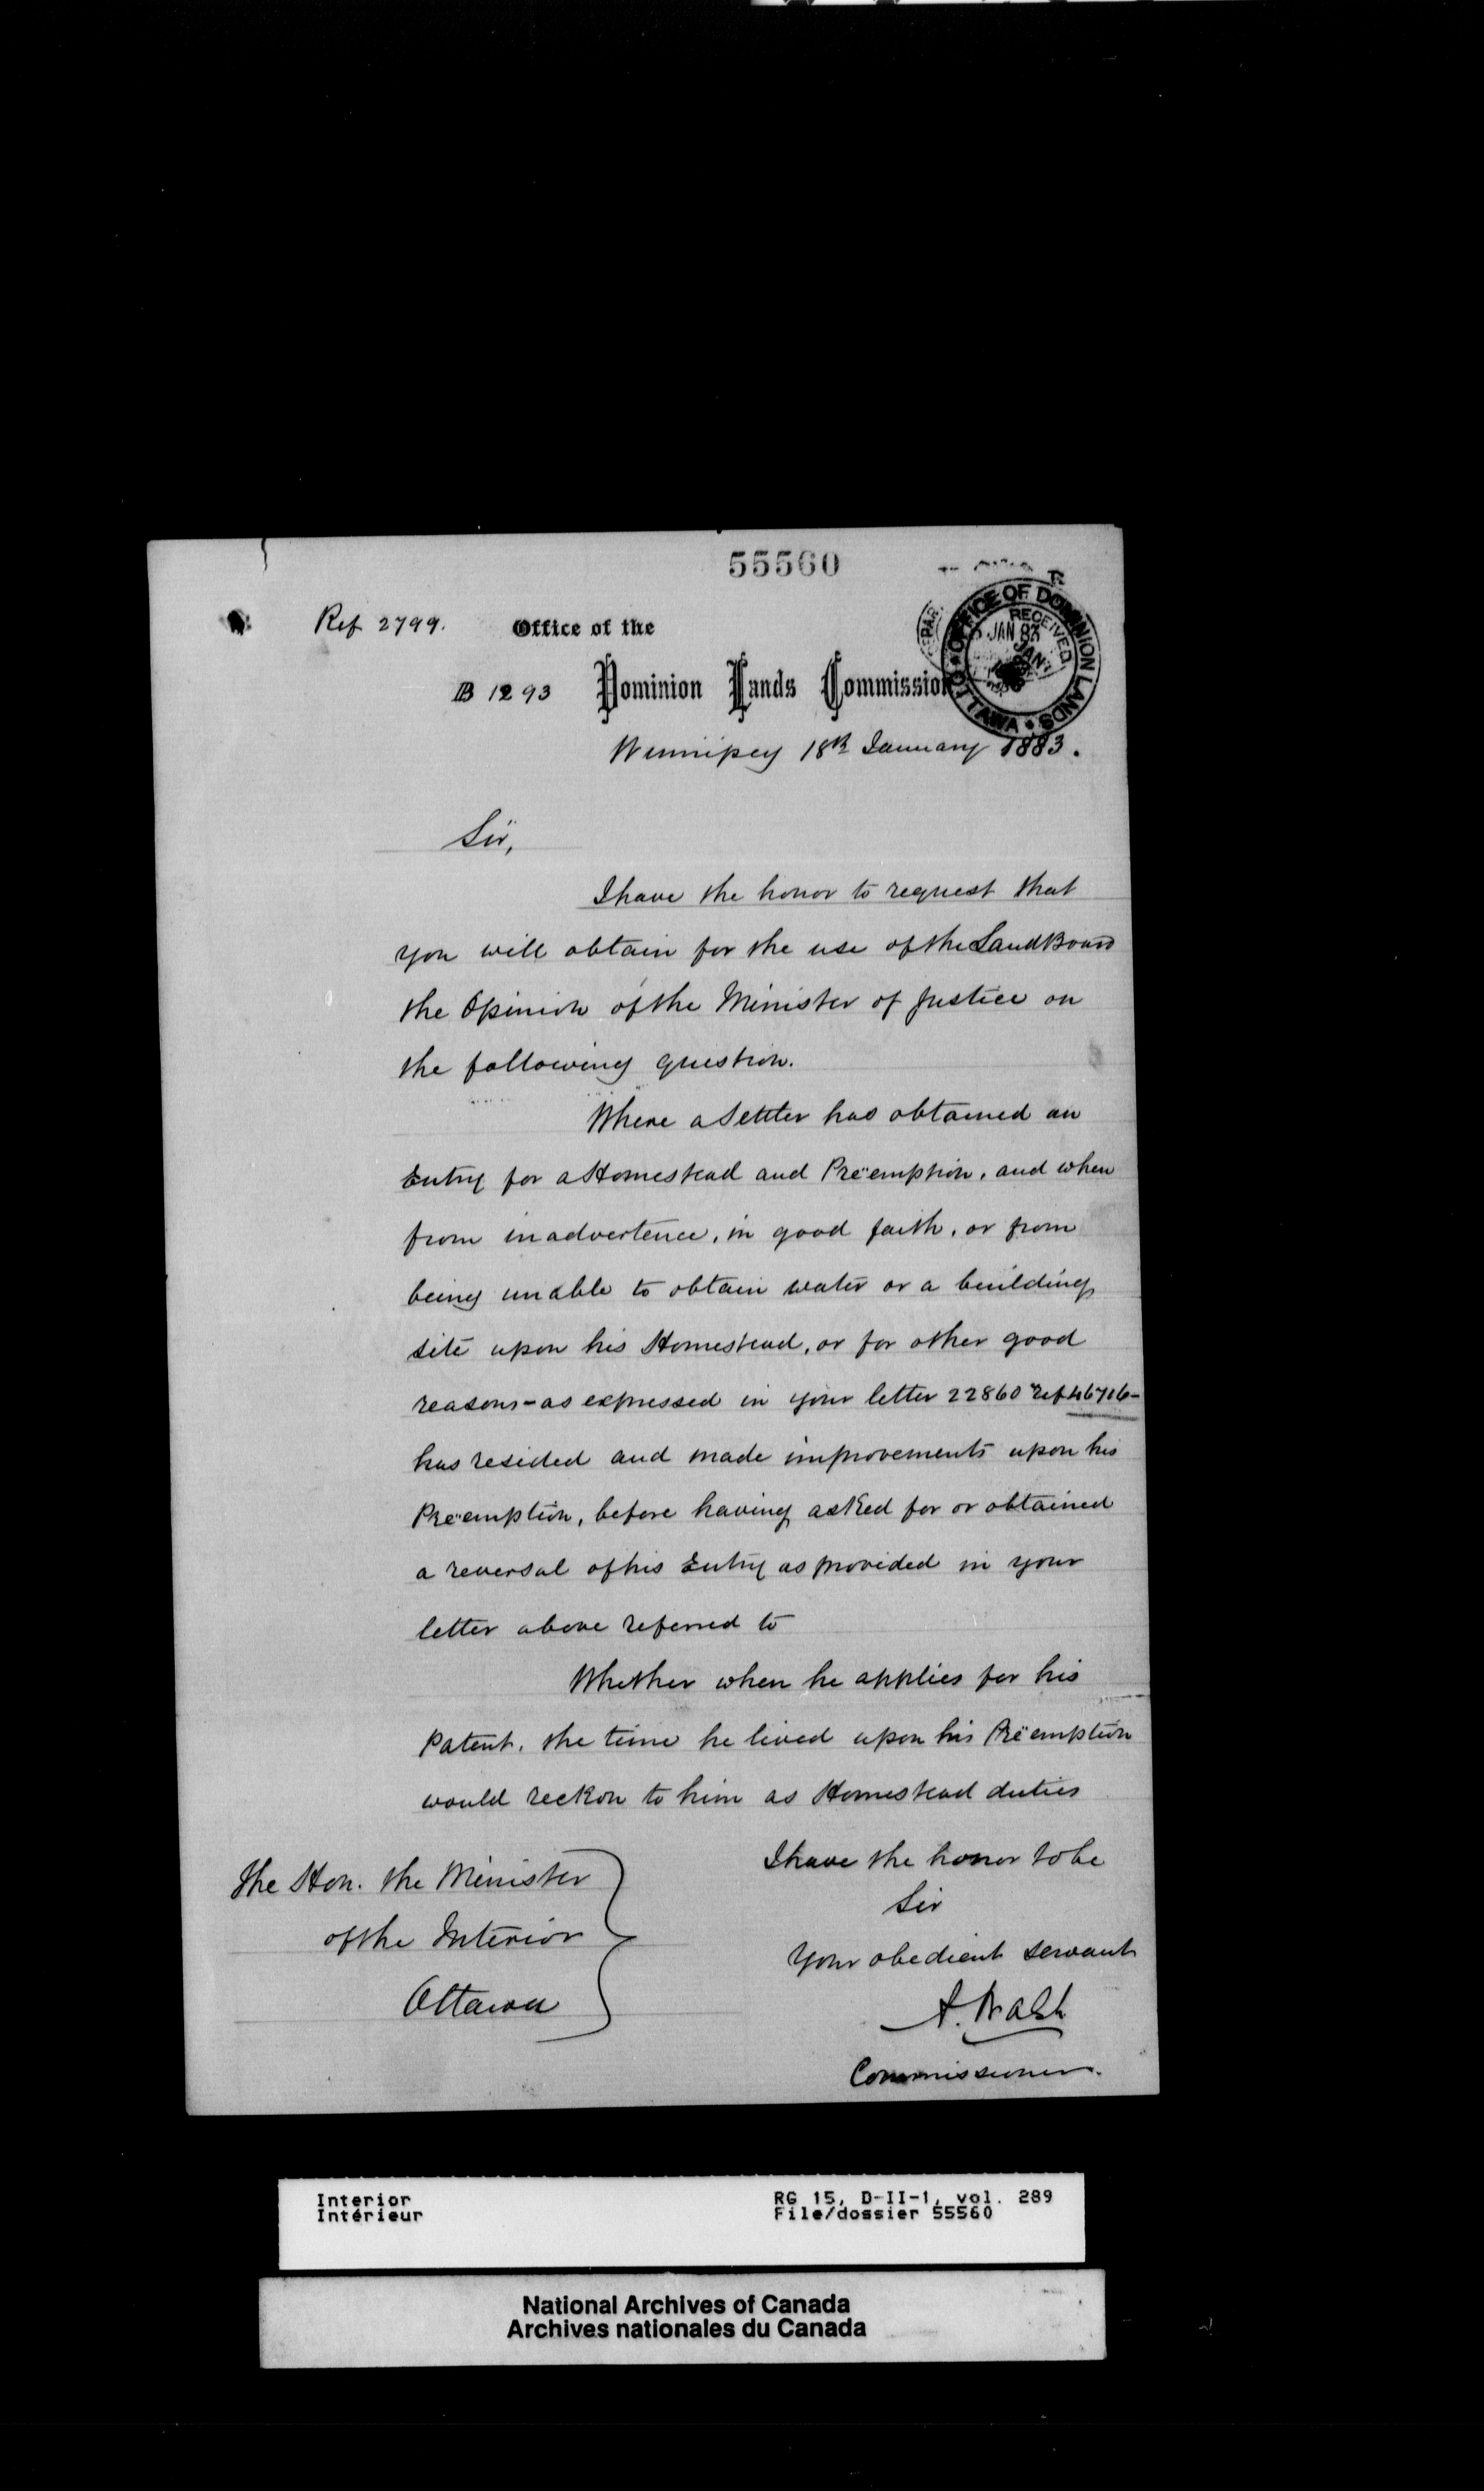 55560
Ref 2799.
Office of the
B 1293 Dominion Lands Commission
OFFICE OF DOMINION LANDS
RECEIVED
JAN 83
OTTAWA
Winnipeg 18th January 1883.
Sir,
I have the honor to request that
you will obtain for the use of the Land Board
the Opinion of the Minister of Justice on
the following question.
Where a Settler has obtained an
Entry for a Homestead and Preëmption, and when
from inadvertence, in good faith, or from
being unable to obtain water or a building
site upon his Homestead, or for other good
reasons - as expressed in your letter 22860 ref 46706 -
has resided and made improvements upon his
Preëmption, before having asked for or obtained
a reversal of his Entry as provided in your
letter above referred to
Whether when he applies for his
Patent, the time he lived upon his Preëmption
would reckon to him as Homestead duties
I have the honor to be
Sir
Your obedient servant
A. Walsh
Commissioner.
The Hon. the Minister
of the Interior
Ottawa
Interior
Intérieur
RG 15, D-II-1, vol. 289
File/dossier 55560
National Archives of Canada
Archives nationales du Canada